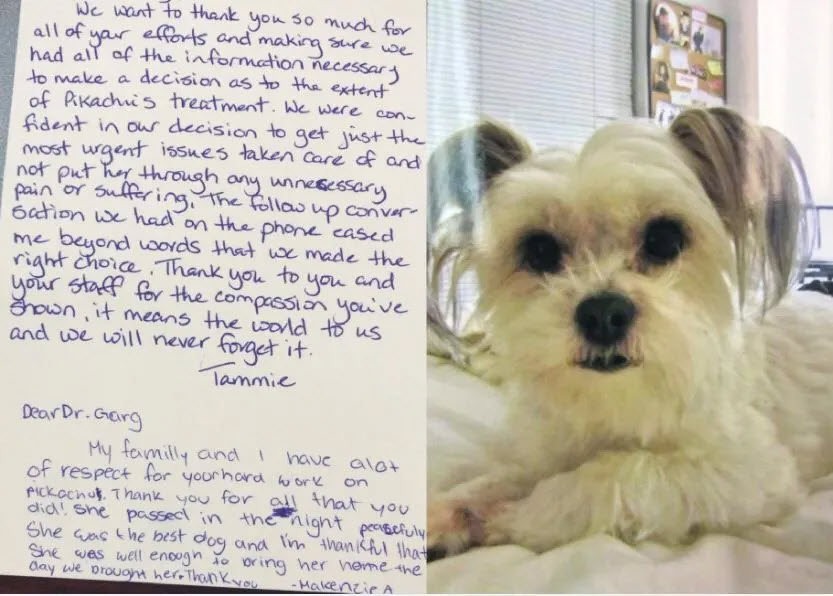 We want to thank you so much for
all of your efforts and making sure we
had all of the information necessary
to make a decision as to the extent
of Pikachu's treatment. We were con-
fident in our decision to get just the
most urgent issues taken care of and
not put her through any unnesessary
pain or suffering. The follow up conver-
sation we had on the phone eased
me beyond words that we made the
right choice. Thank you to you and
your staff for the compassion you've
shown, it means the world to us
and we will never forget it.
Tammie
Dear Dr. Garg
My familly and I have alot
of respect for your hard work on
Pickachu. Thank you for all that you
did! She passed in the night peacefuly
She was the best dog and I'm thankful that
She was well enough to bring her home the
day we brought her. Thank you -Makenzie A